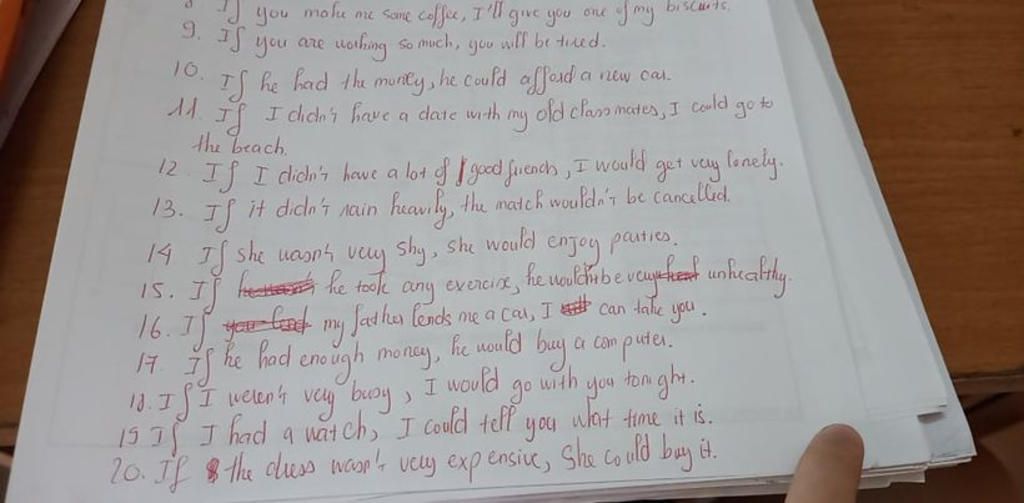 8 If you make me some coffee, I'll give you one of my biscuits.
9. If you are working so much, you will be tired.
10. If he had the money, he could afford a new car.
11. If I didn't have a date with my old classmates, I could go to
the beach.
12. If I didn't have a lot of good friends, I would get very lonely.
13. If it didn't rain heavily, the match wouldn't be cancelled.
14 If she wasn't very shy, she would enjoy parties.
15. If he took any exercise, he wouldn't be very unhealthy.
16. If my father lends me a car, I can take you.
17. If he had enough money, he would buy a computer.
18. If I weren't very busy, I would go with you tonight.
19 If I had a watch, I could tell you what time it is.
20. If the dress wasn't very expensive, She could buy it.